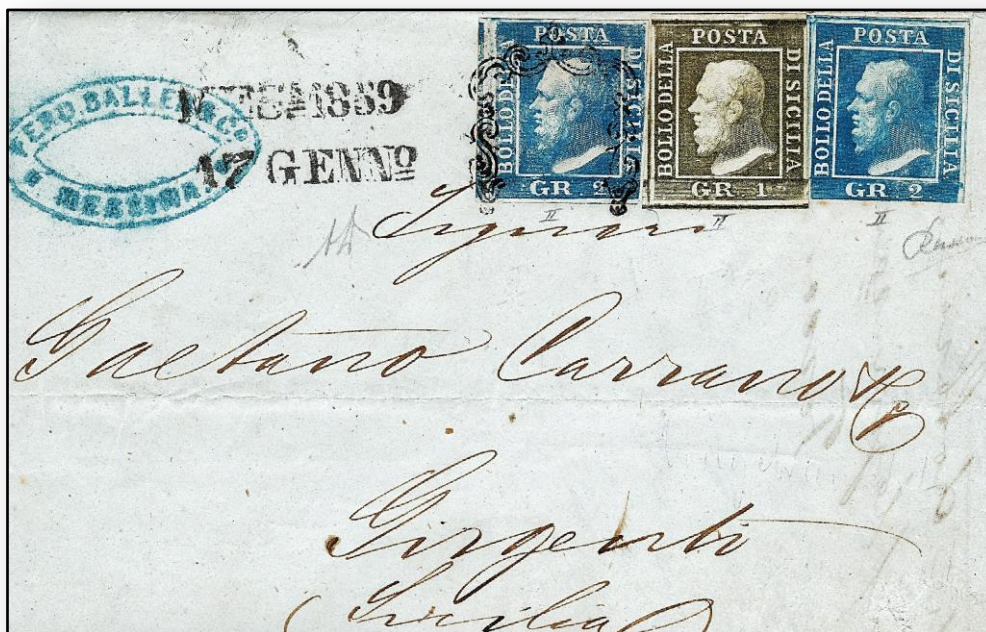 FERD. BALLER & Cº
MESSINA
1859
17 GENNº
POSTA
BOLLO DELLA
DI SICILIA
GR 2
POSTA
BOLLO DELLA
DI SICILIA
GR 1
POSTA
BOLLO DELLA
DI SICILIA
GR 2
II
II
II
Signori
Gaetano Carrano &
Girgenti
(Sicilia)